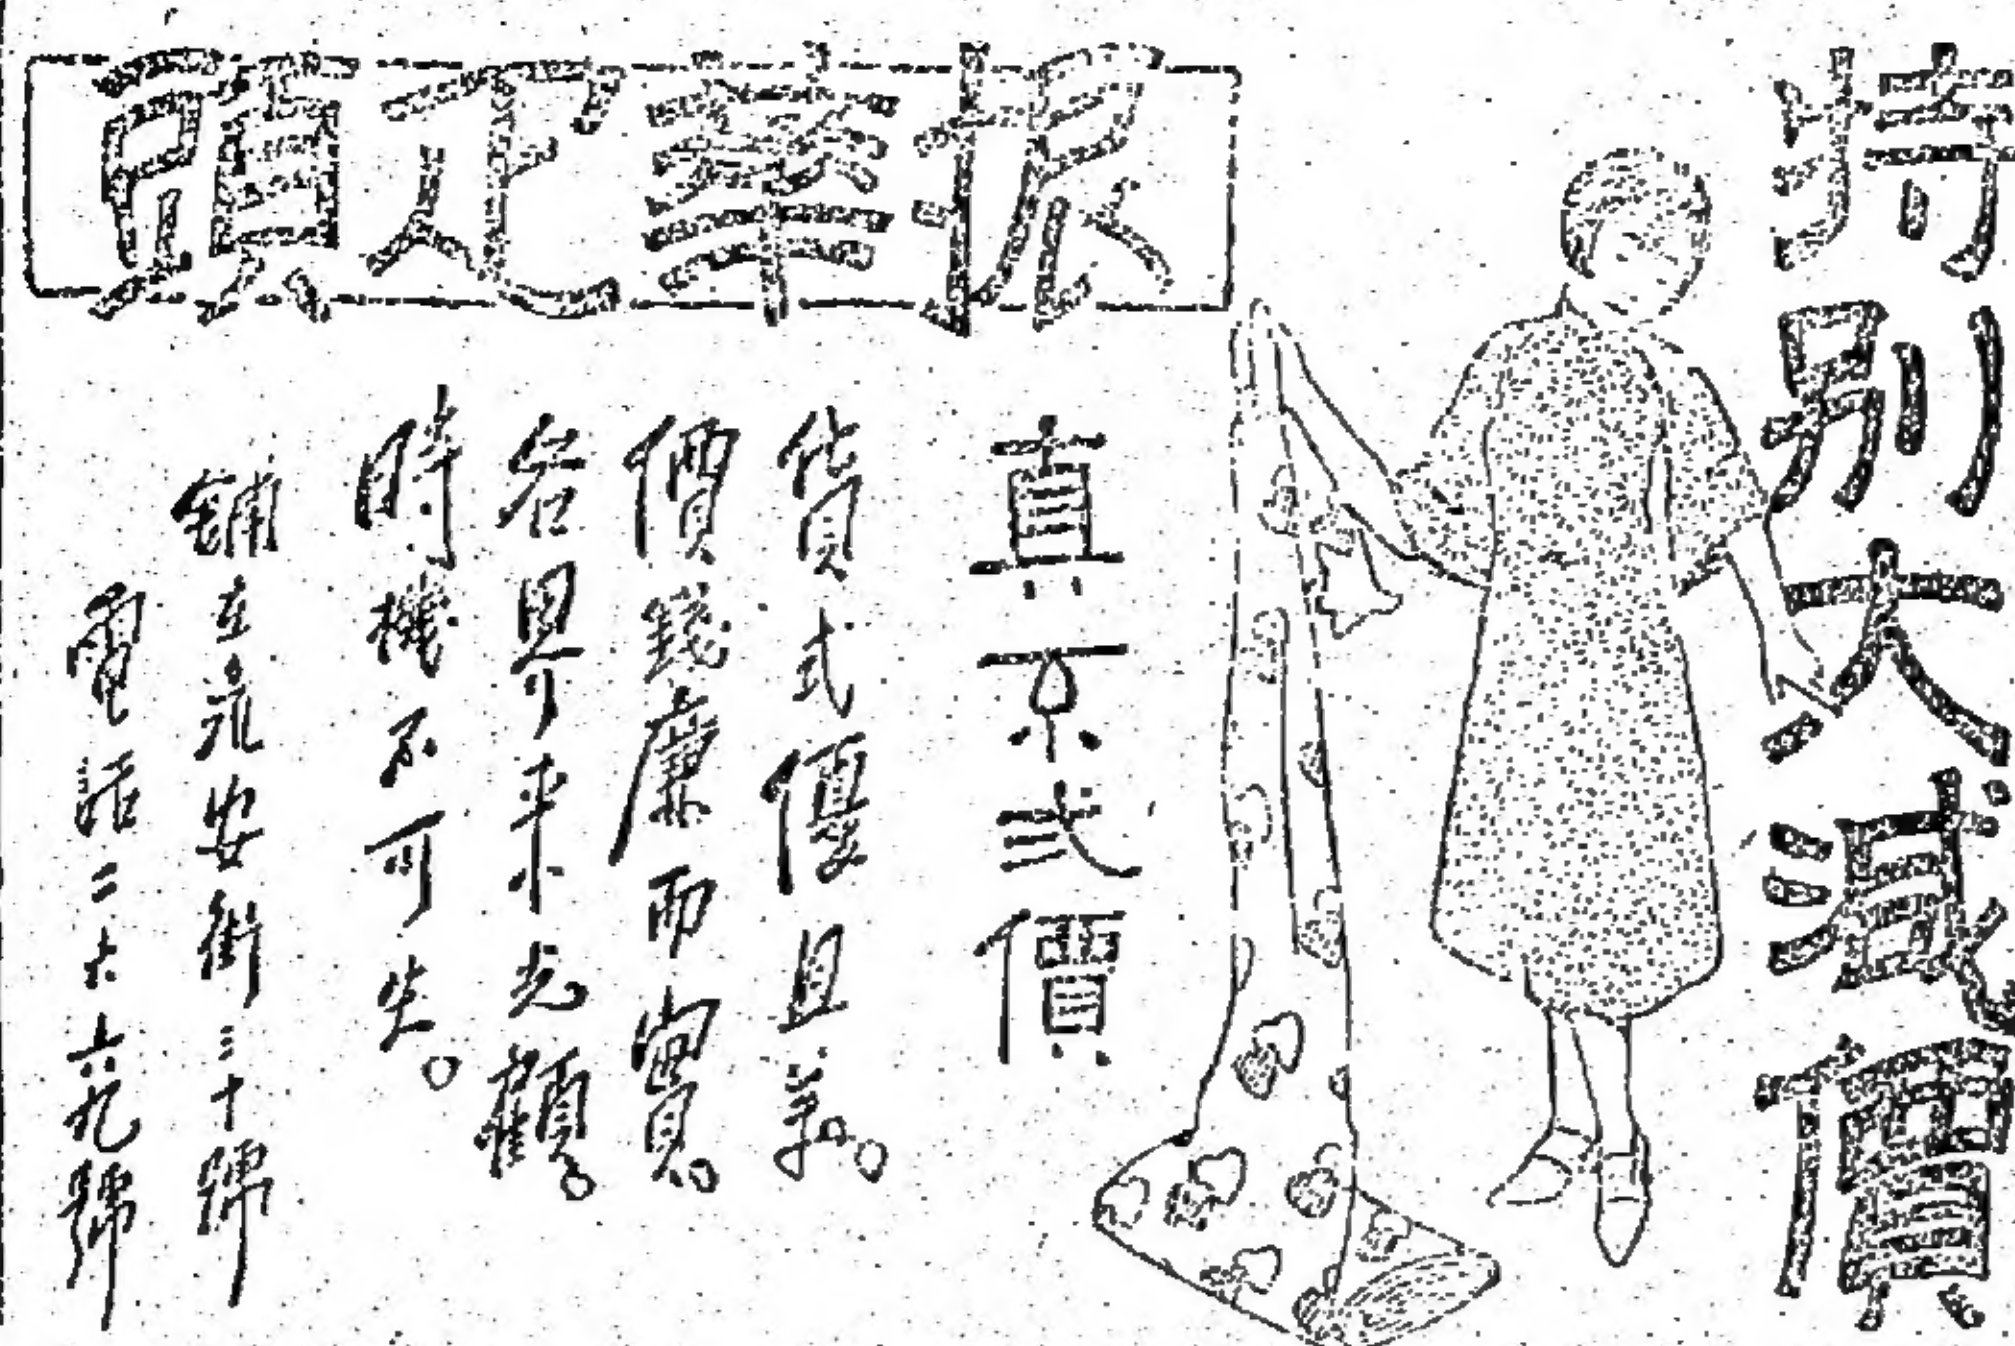 特別大減價
振華疋頭
真不弍價
貨式優且美。
價錢廉而實。
各界來光顧。
時機不可失。
舖在永安街三十號
電話二六六九號